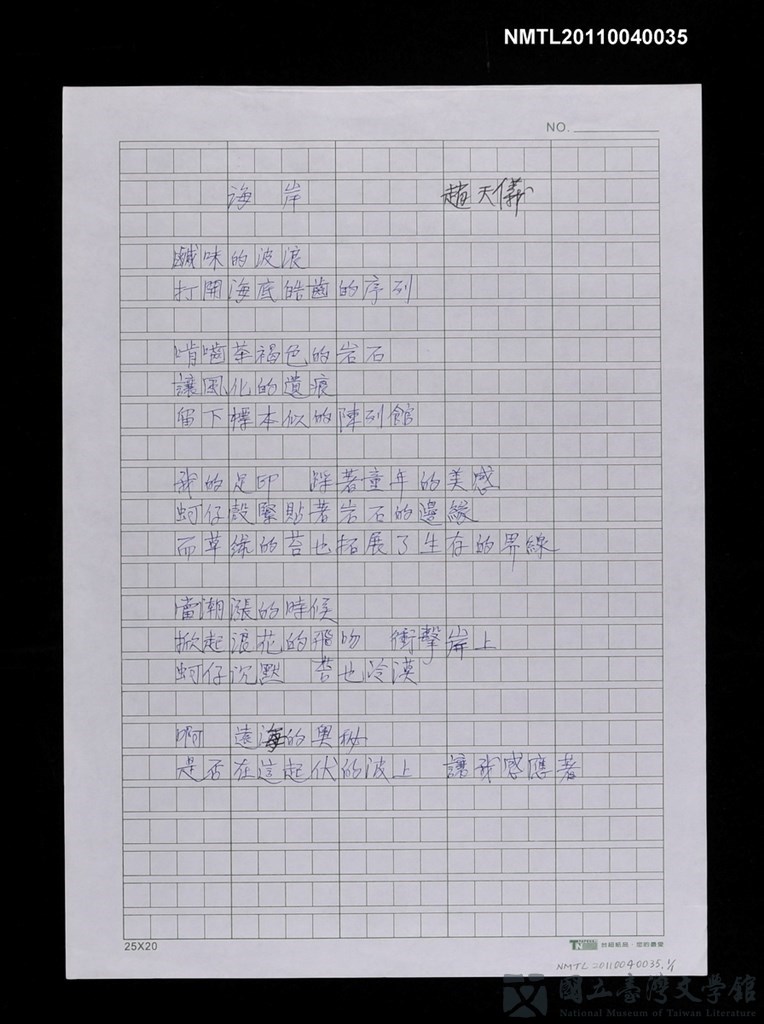 NMTL20110040035
NO.
海 岸 趙天儀
鹹味的波浪
打開海底皓齒的序列
啃嚙茶褐色的岩石
讓風化的遺痕
留下標本似的陳列館
我的足印 踩著童年的美感
蚵仔殼緊貼著岩石的邊緣
而草綠的苔也拓展了生存的界線
當潮漲的時候
掀起浪花的飛吻 衝擊岸上
蚵仔沉默 苔也冷漠
啊 遠海的奧秘
是否在這起伏的波上 讓我感應著
25X20
NMTL20110040035,1/1
國立臺灣文學館
National Museum of Taiwan Literature